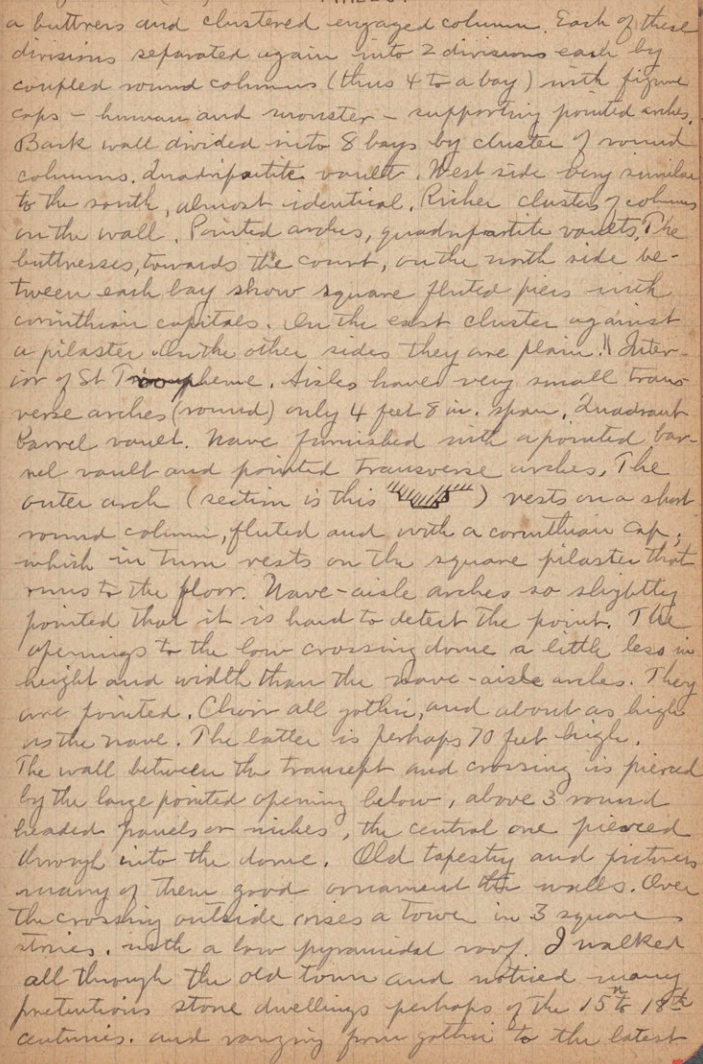 a buttress and clustered engaged column. Each of these
divisions separated again into 2 divisions each by
coupled round columns (thus 4 to a bay) with figure
caps - human and monster - supporting pointed arches.
Back wall divided into 8 bays by cluster of round
columns. Quadripartite vault. West side very similar
to the south, almost identical. Richer clusters of columns
on the wall. Pointed arches, quadripartite vaults. The
buttresses, towards the court, on the north side be-
tween each bay show square fluted piers with
corinthian capitals. On the east cluster against
a pilaster. On the other sides they are plain. " Inter-
ior of St Tropheme. Aisles have very small trans-
verse arches (round) only 4 feet 8 in. span. Quadrant
barrel vault. Nave furnished with a pointed bar-
rel vault and pointed transverse arches. The
outer arch (section is this ) rests on a short
round column, fluted and with a corinthian cap;
which in turn rests on the square pilaster that
runs to the floor. Nave-aisle arches so slightly
pointed that it is hard to detect the point. The
openings to the low crossing dome a little less in
height and width than the nave-aisle arches. They
are pointed. Choir all gothic, and about as high
as the nave. The latter is perhaps 70 feet high.
The wall between the transept and crossing is pierced
by the large pointed opening below, above 3 round
headed panels or niches, the central one pierced
through into the dome. Old tapestry and pictures
many of them good ornament the walls. Over
the crossing outside rises a tower in 3 square
stories. with a low pyramidal roof. I walked
all through the old town and noticed many
pretentious stone dwellings perhaps of the 15th to 18th
centuries. and ranging from gothic to the latest